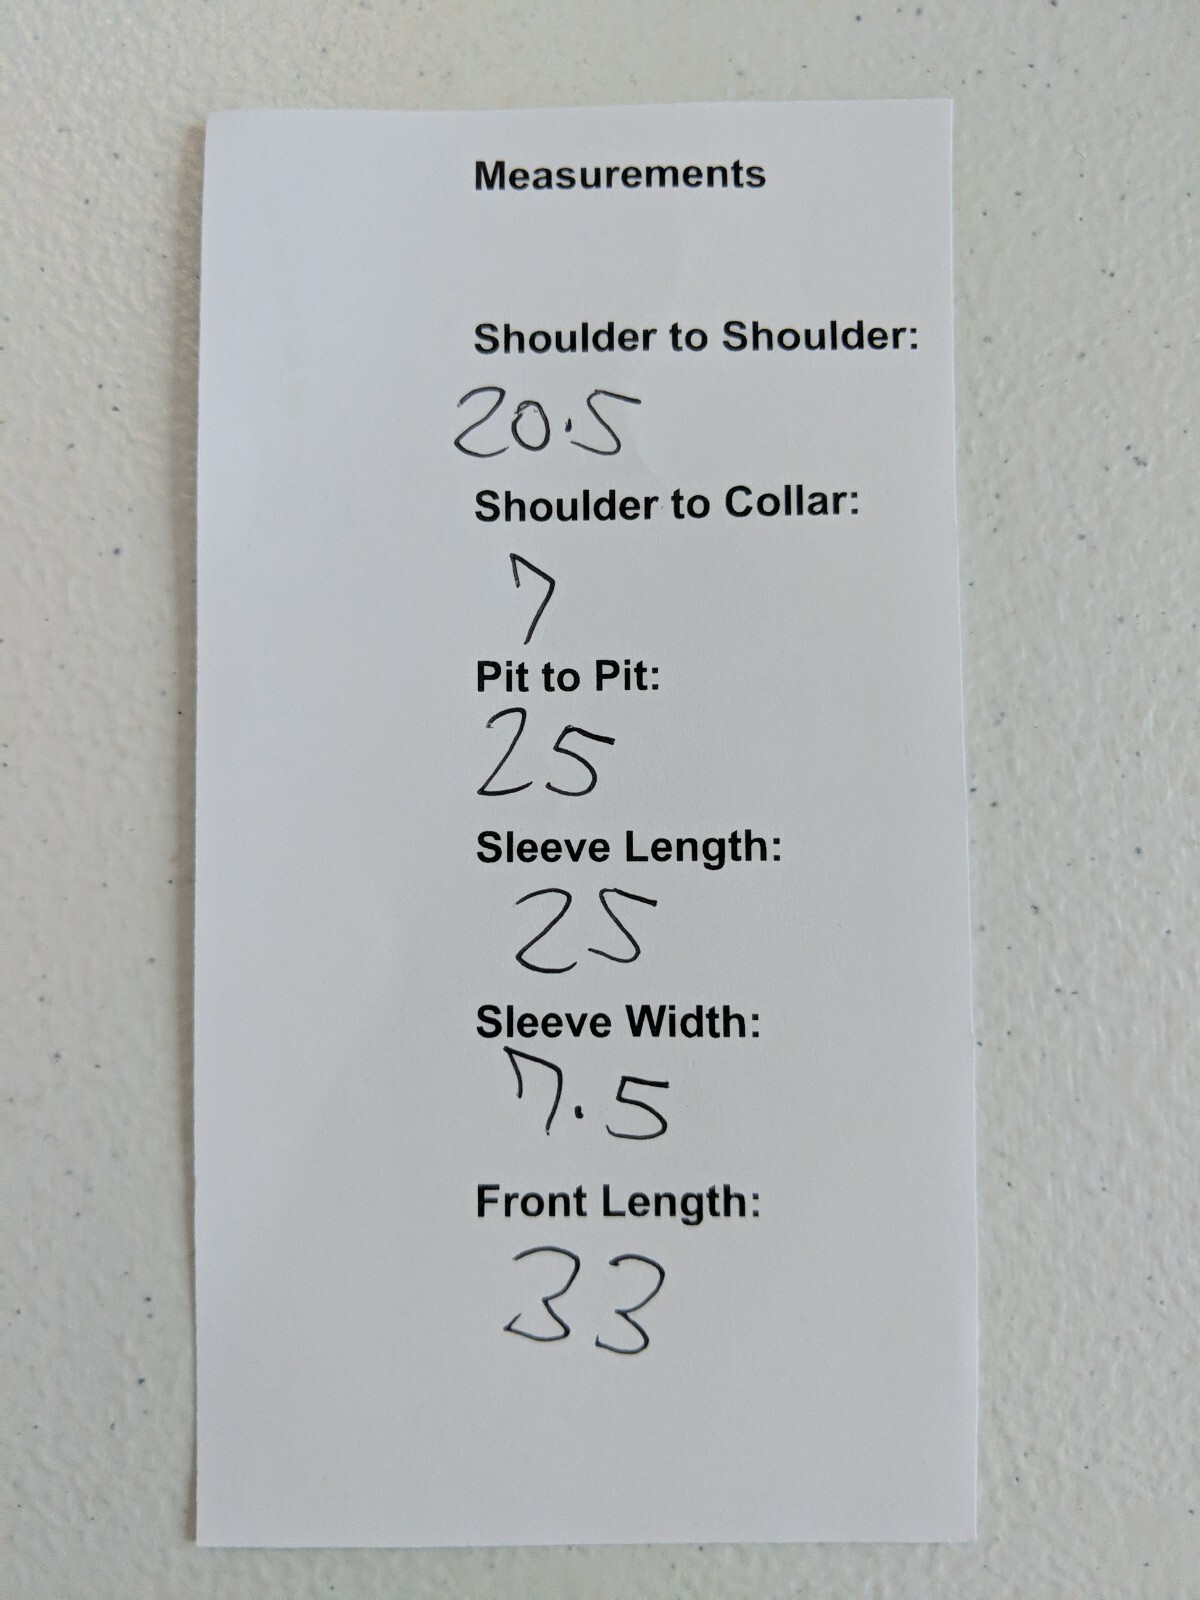 Measurements
Shoulder to Shoulder:
20.5
Shoulder to Collar:
7
Pit to Pit:
25
Sleeve Length:
25
Sleeve Width:
7.5
Front Length:
33